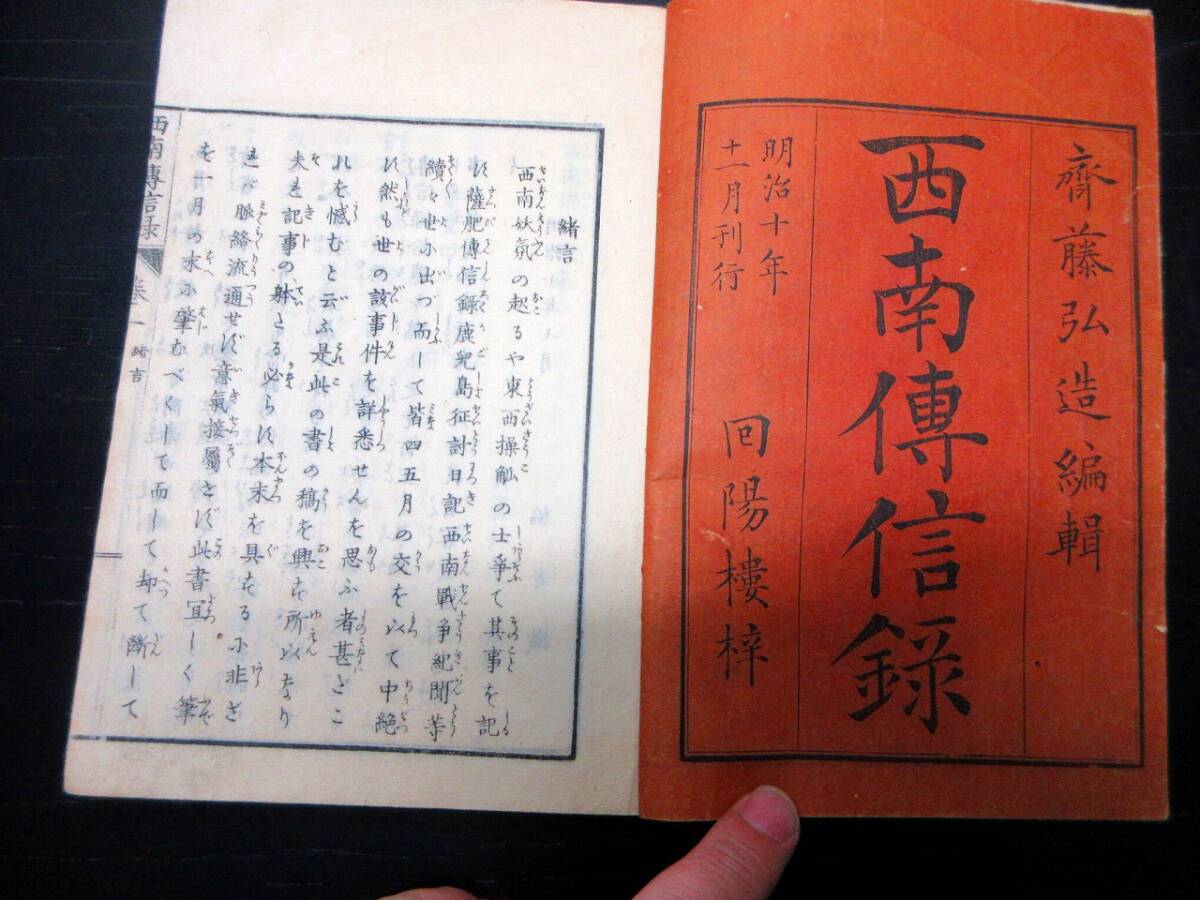 齊藤弘造編輯
西南傳信錄
明治十年
十一月刊行
回陽樓梓
緒言
西南妖氛の起るや東西操觚の士爭て其事を記
す薩肥傳信錄鹿兒島征討日記西南戰爭紀聞等
續々世に出つ而して皆四五月の交を以て中絶
す然も世の該事件を詳悉せんを思ふ者甚ざこ
れを憾むと云ふ是此の書の稿を興す所以なり
夫れ記事の躰たる必らす本末を具する に非ざ
れば脈絡流通せず意氣接屬せず此書宜しく筆
を一月の末に肇むべくして而して却て斷して
西南傳信录 卷一 緒言